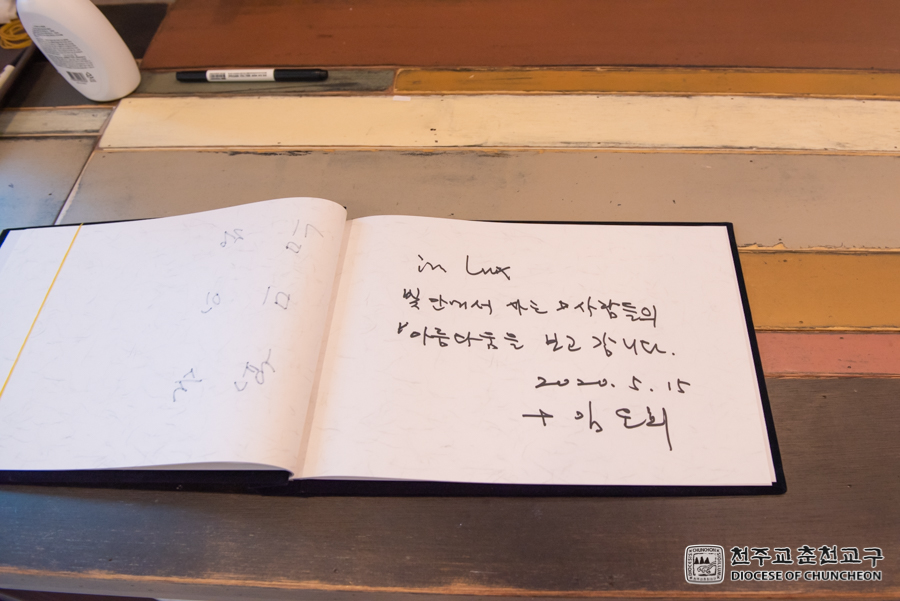 in Lux
빛 안에서 사는 사람들의
아름다움을 보고 갑니다.
2020. 5. 15
+ 임
천주교춘천교구
DIOCESE OF CHUNCHEON